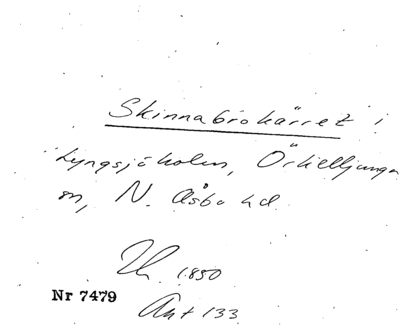 Skinnabrokärret i
Lyngsjöholm, Örkelljunga
sn, N. Åsbo hd.
Uk. 1850
Nr 7479
Akt 133